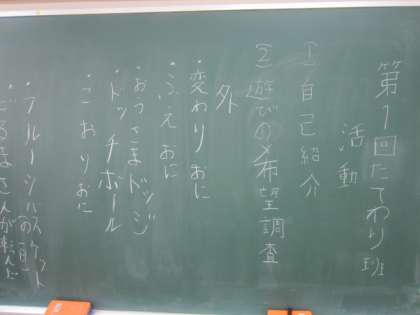 第1回たてわり班
活動
1 自己紹介
2 遊びの希望調査
外
・変わりおに
・ふえおに
・おうさまドッジ
・ドッチボール
・こおりおに
・フルーツバスケット
・だるまさんが転んだ